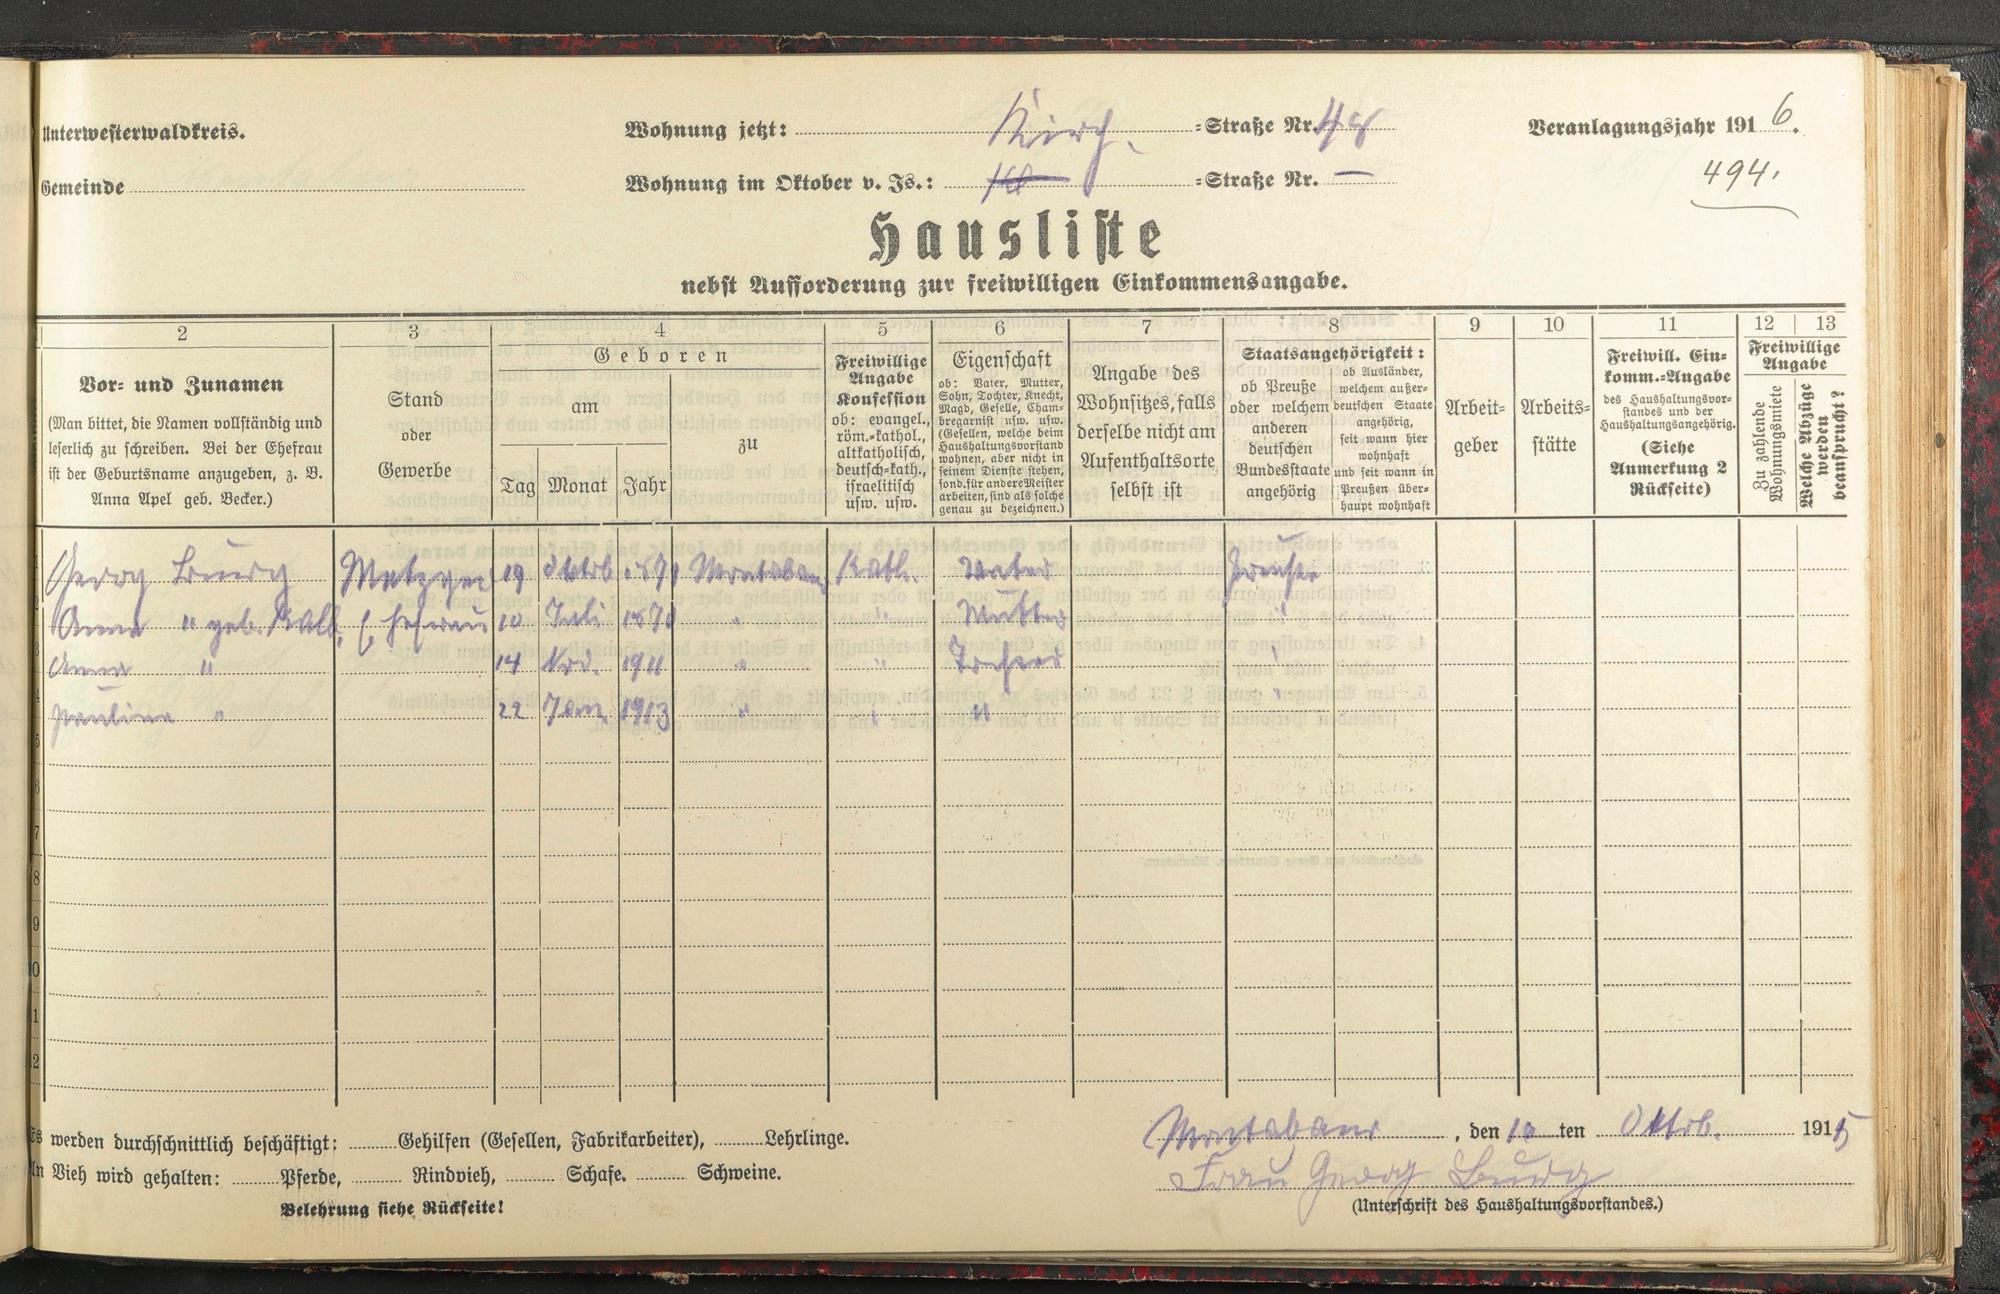 Unterwesterwaldkreis.
Wohnung jetzt: Kirch =Straße Nr. 48
Veranlagungsjahr 1916.
Gemeinde
Wohnung im Oktober v. Js.: =Straße Nr. —
494.
Hausliste
nebst Aufforderung zur freiwilligen Einkommensangabe.
2 3 4 5 6 7 8 9 10 11 12 13
Vor- und Zunamen
(Man bittet, die Namen vollständig und
leserlich zu schreiben. Bei der Ehefrau
ist der Geburtsname anzugeben, z. B.
Anna Apel geb. Becker.)
Stand
oder
Gewerbe
Geboren
am
zu
Tag Monat Jahr
Freiwillige
Angabe
Konfession
ob: evangel.,
röm.-kathol.,
altkatholisch,
deutsch-kath.,
israelitisch
usw. usw.
Eigenschaft
ob: Vater, Mutter,
Sohn, Tochter, Knecht,
Magd, Geselle, Cham-
bregarnist usw. usw.
(Gesellen, welche beim
Haushaltungsvorstand
wohnen, aber nicht in
seinem Dienste stehen,
sond. für andere Meister
arbeiten, sind als solche
genau zu bezeichnen.)
Angabe des
Wohnsitzes, falls
derselbe nicht am
Aufenthaltsorte
selbst ist
Staatsangehörigkeit:
ob Preuße
oder welchem
anderen
deutschen
Bundesstaate
angehörig
ob Ausländer,
welchem außer-
deutschen Staate
angehörig,
seit wann hier
wohnhaft
und seit wann in
Preußen über-
haupt wohnhaft
Arbeit-
geber
Arbeits-
stätte
Freiwill. Ein-
komm.-Angabe
des Haushaltungsvor-
standes und der
Haushaltungsangehörig.
(Siehe
Anmerkung 2
Rückseite)
Freiwillige
Angabe
Zu zahlende
Wohnungsmiete
Welche Abzüge
werden
beansprucht?
Georg Burg Metzger 19 Oktrb. Montabaur Kath. Vater Preuße
Anna " geb. Kalb, Ehefrau 10 Juli " " Mutter "
3 Anna " 14 Nov. 1911 " " Tochter "
4 Pauline " 22 Jan. 1913 " " " "
5
6
7
8
9
10
11
12
Es werden durchschnittlich beschäftigt: Gehilfen (Gesellen, Fabrikarbeiter), Lehrlinge.
An Vieh wird gehalten: Pferde, Rindvieh, Schafe. Schweine.
Belehrung siehe Rückseite!
Montabaur, den ten Oktrb. 1915
Frau Georg Burg
(Unterschrift des Haushaltungsvorstandes.)